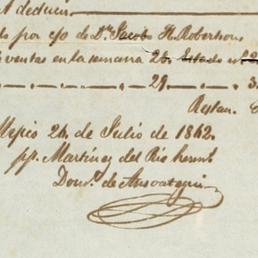 á deducir
do por c/o de Dn. Jacob H. Robertson
ventas en la semana 26. Estado
29
Restan
Mejico 24, de Julio de 1842.
pp. Martinez del Rio herms
Domo. de Ansoategui